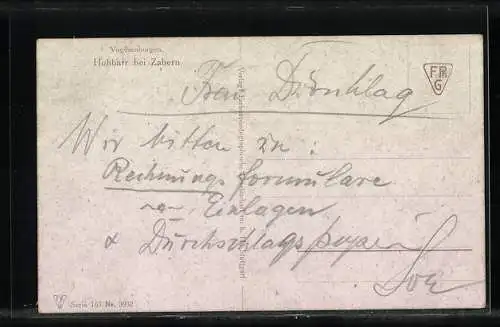 Vogesenburgen.
Hohbarr bei Zabern
F.P.
G
Frau
Wir bitten zu:
Rechnungsformulare
Einlagen
& Durchschlagspapier
Serie 167 Nr. 3932